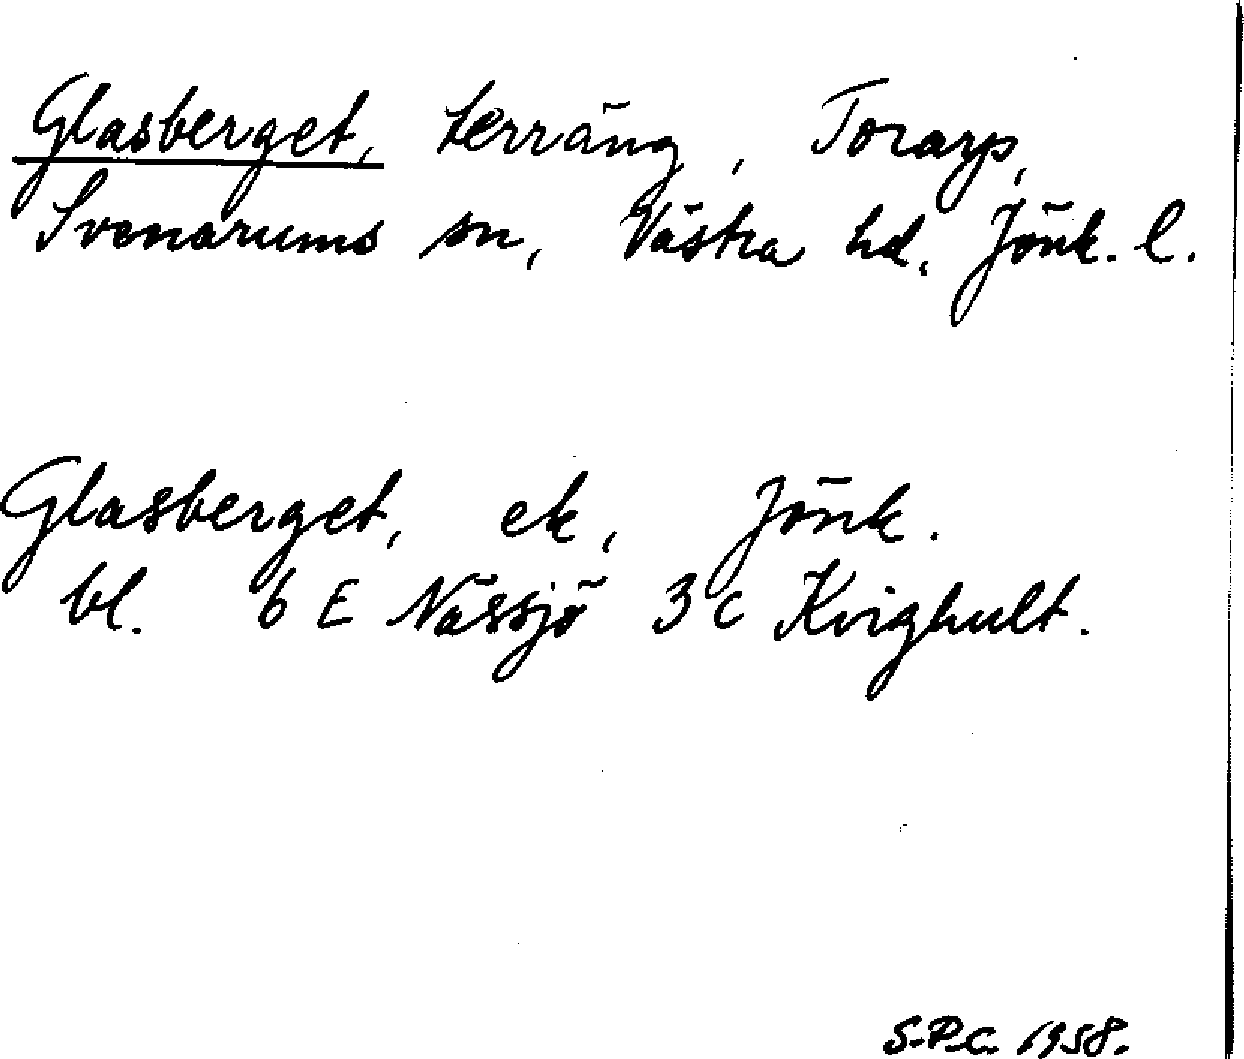 Glasberget, terräng, Torarp,
Svenarums sn, Västra hd, Jönk. l.
Glasberget, ek, Jönk.
bl. 6 E Nässjö 3 c Kvighult.
S.P.C. 1958.